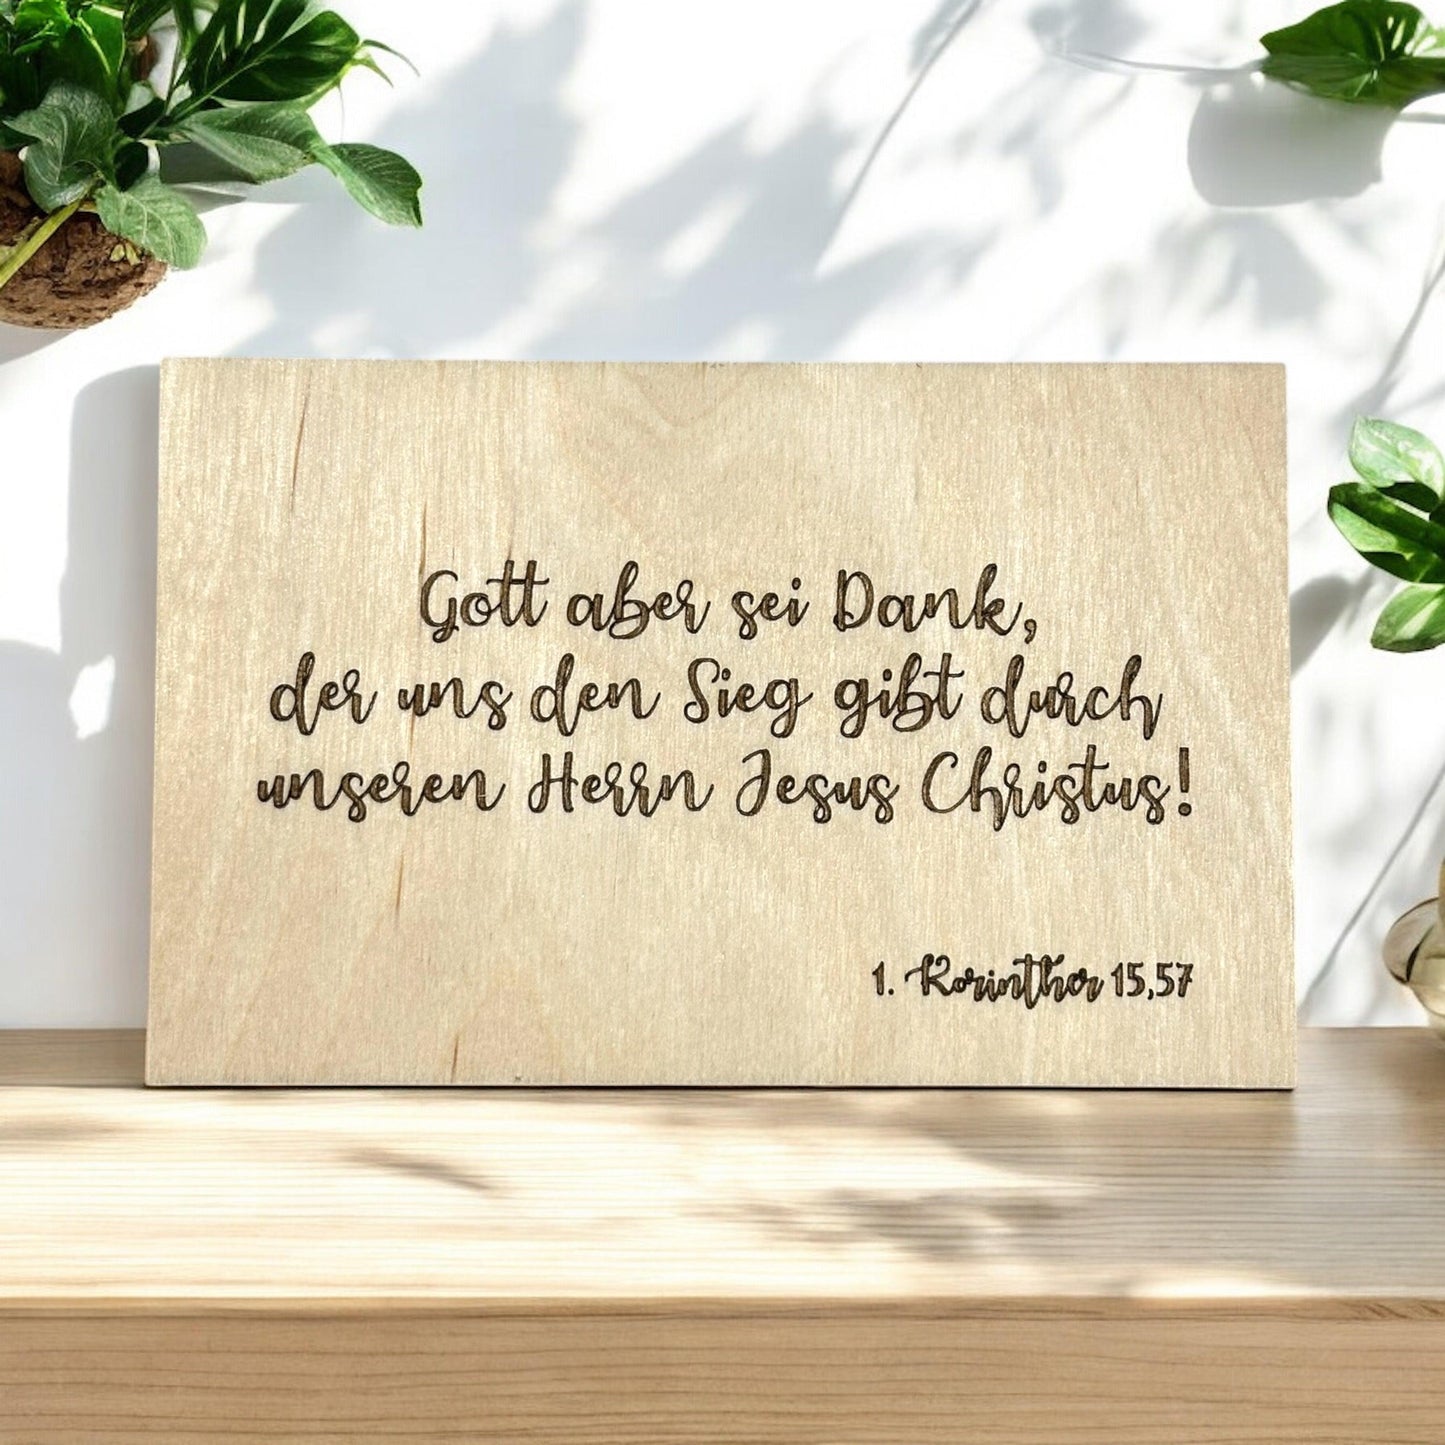 Gott aber sei Dank,
der uns den Sieg gibt durch
unseren Herrn Jesus Christus!
1. Korinther 15,57